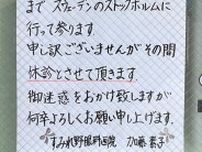 まで スウェーデンのストックホルムに
行って参ります。
申し訳ございませんがその間
休診とさせて頂きます。
御迷惑をおかけ致しますが
何卒よろしくお願い申し上げます。
すみれ野眼科医院 加藤 素子